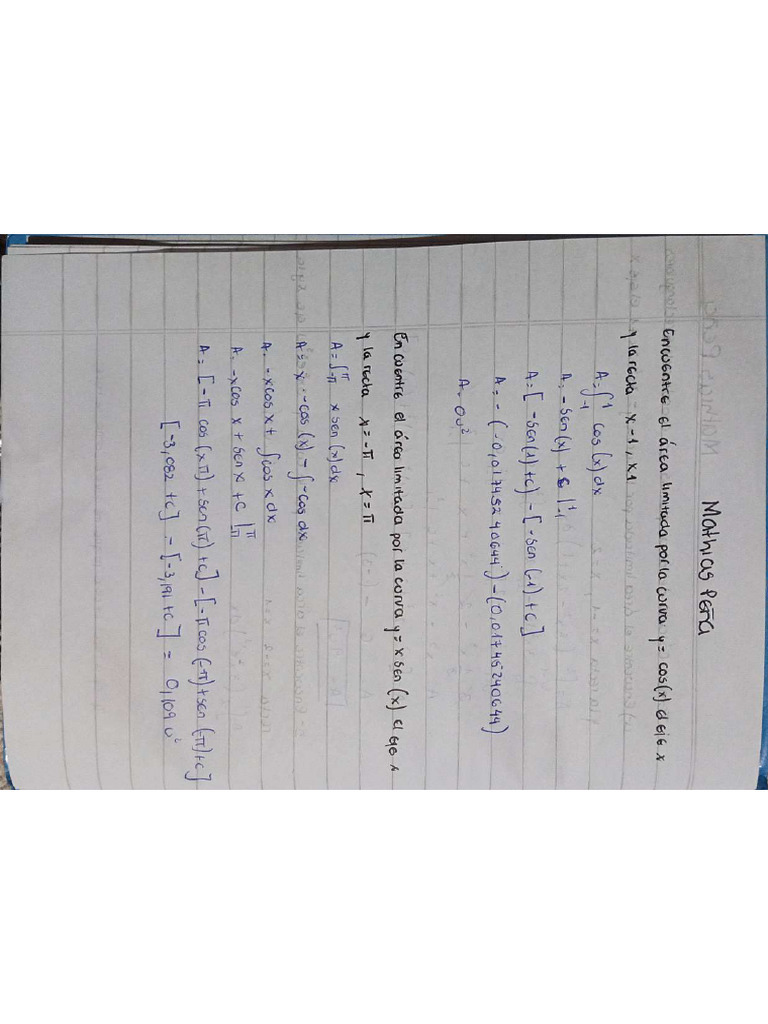 Mathias Peña
Encuentre el área limitada por la curva y= cos(x) el eje x
y la recta x-1, x1
A= ∫₋₁¹ cos(x)dx
A= -sen(x) + c |₋₁¹
A= [-sen(1)+c] - [-sen(-1)+c]
A= -(-0,01745240644) - (0,01745240644)
A= 0u²
Encuentre el área limitada por la curva y= x sen(x) el eje x
y la recta x=-π, x=π
A= ∫₋π^π x sen(x)dx
A= x · -cos(x) - ∫-cos dx
A= -xcos x + ∫cos x dx
A= -xcos x + sen x + c |₋π^π
A= [-π cos(xπ)+sen(π)+c] - [-π cos(-π)+sen(-π)+c]
[-3,082+c] - [-3,191+c] = 0,109 u²